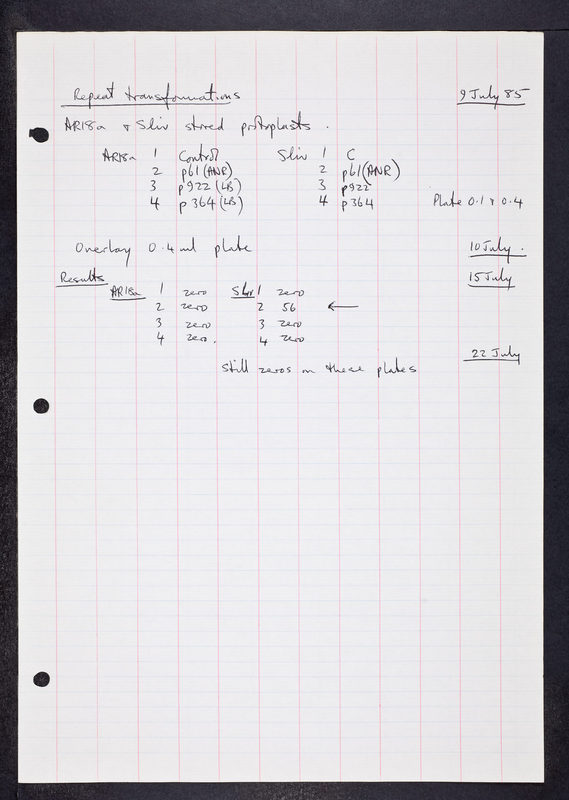 Repeat transformations 9 July 85
AR18a & Sliv stored protoplasts.
AR18a 1 Control Sliv 1 C
2 p61 (ANR) 2 p61 (ANR)
3 p922 (LB) 3 p922
4 p364 (LB) 4 p364 Plate 0.1 & 0.4
Overlay 0.4 ml plate 10 July.
Results 15 July
AR18a 1 zero Sliv 1 zero
2 zero 2 56 ←
3 zero 3 zero
4 zero. 4 zero
22 July
Still zeros on these plates